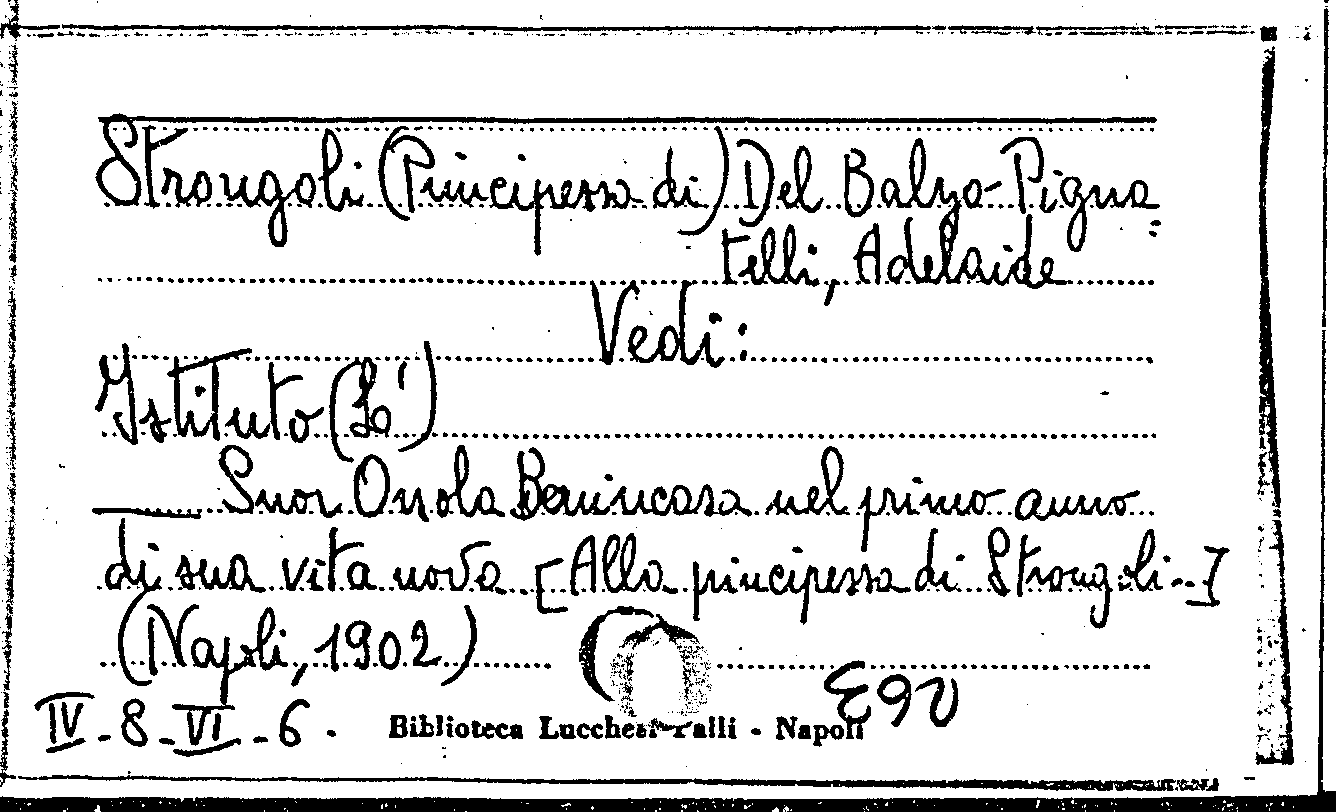 Strongoli (Principessa di) Del Balzo-Pigna=
telli, Adelaide
Vedi:
Istituto (Lo)
Suor Orsola Benincasa nel primo anno
di sua vita nova [Alla principessa di Strongoli..]
(Napoli, 1902)
IV-8-VI-6.
Biblioteca Lucchesi-Palli - Napoli